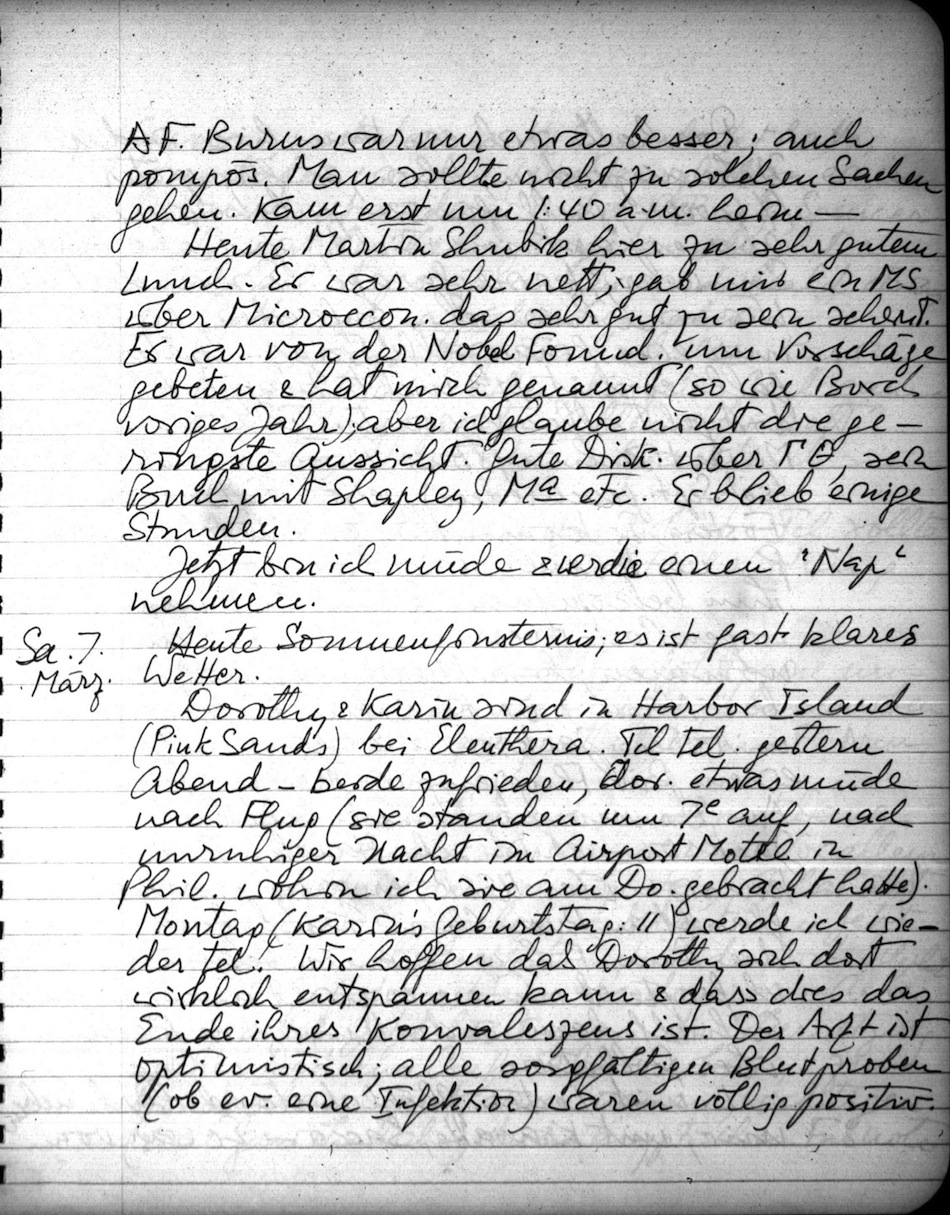 A F. Burns war nur etwas besser; auch
pompös. Man sollte nicht zu solchen Sachen
gehen. Kam erst um 1:40 a.m. heim —
Heute Martin Shubik hier zu sehr gutem
Lunch. Er war sehr nett, gab mir ein MS
über Microecon. das sehr gut zu sein scheint.
Er war von der Nobel Found. um Vorschäge
gebeten & hat mich genannt (so wie Borch
voriges Jahr); aber ich glaube nicht die ge-
ringste Aussicht. Gute Disk. über Γ Θ, sein
Buch mit Shapley, Ma etc. Er blieb einige
Stunden.
Jetzt bin ich müde & werde einen "Nap"
nehmen.
Sa. 7. Heute Sonnenfinsternis; es ist fast klares
März. Wetter.
Dorothy & Karin sind in Harbor Island
(Pink Sands) bei Eleuthera. Tel. gestern
Abend – beide zufrieden, Dor. etwas müde
nach Flug (sie standen um 7e auf, nach
unruhiger Nacht im Airport Motel in
Phil. wohin ich sie am Do. gebracht hatte).
Montag (Karin's Geburtstag: 11) werde ich wie-
der tel. Wir hoffen das Dorothy sich dort
wirklich entspannen kann & dass dies das
Ende ihres Konvaleszens ist. Der Arzt ist
optimistisch; alle sorgfältigen Blutproben
(ob ev. eine Infektion) waren völlig positiv.